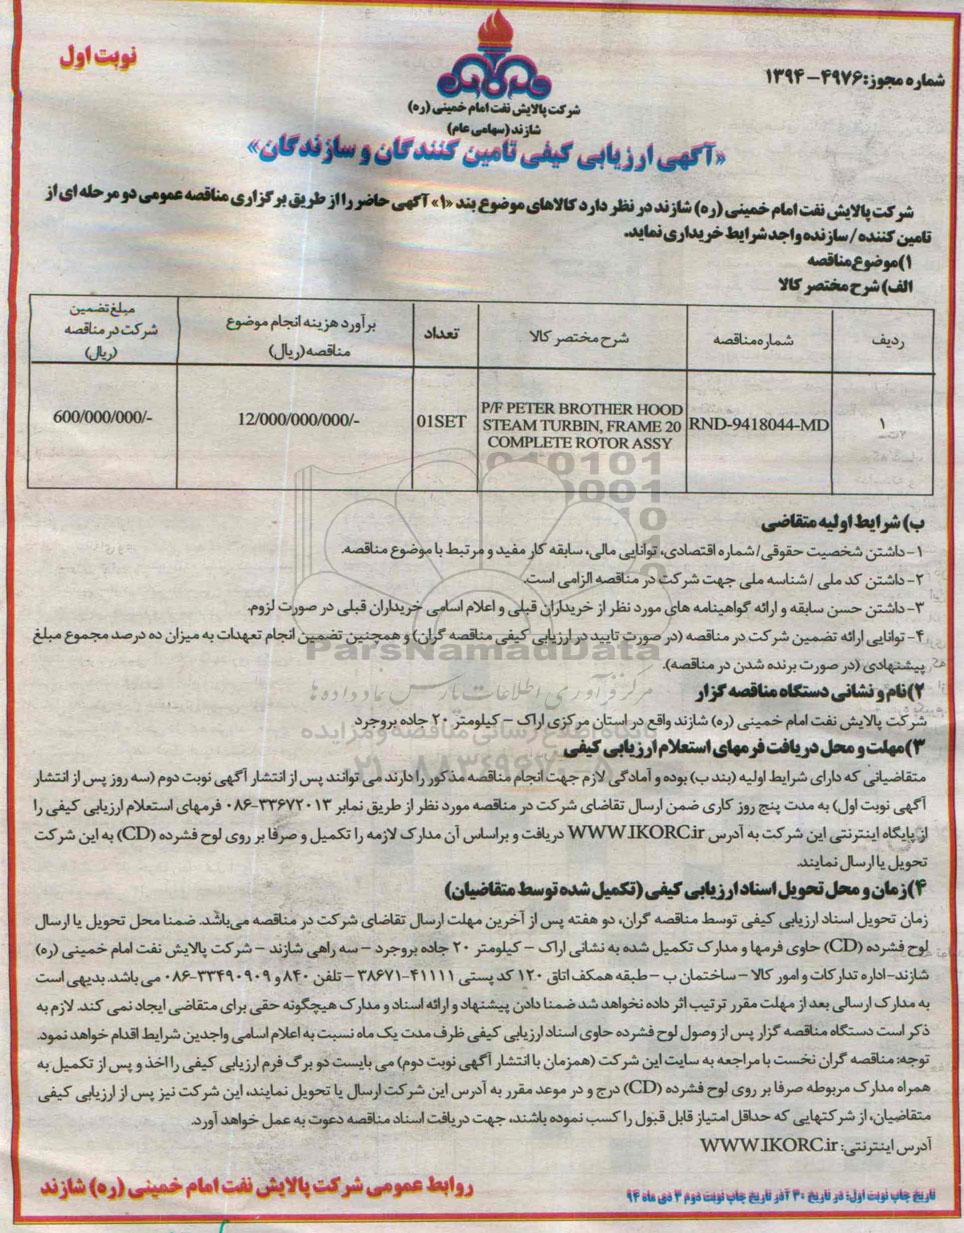 نوبت اول
شماره مجوز: ۴۹۷۶-۱۳۹۴
شرکت پالایش نفت امام خمینی (ره)
شازند (سهامی عام)
«آگهی ارزیابی کیفی تامین کنندگان و سازندگان»
شرکت پالایش نفت امام خمینی (ره) شازند در نظر دارد کالاهای موضوع بند «۱» آگهی حاضر را از طریق برگزاری مناقصه عمومی دو مرحله ای از
تامین کننده / سازنده واجد شرایط خریداری نماید.
۱) موضوع مناقصه
الف) شرح مختصر کالا
ردیف
شماره مناقصه
شرح مختصر کالا
تعداد
برآورد هزینه انجام موضوع
مناقصه (ریال)
مبلغ تضمین
شرکت در مناقصه
(ریال)
۱
RND-9418044-MD
P/F PETER BROTHER HOOD
STEAM TURBIN, FRAME 20
COMPLETE ROTOR ASSY
01SET
12/000/000/000/-
600/000/000/-
ب) شرایط اولیه متقاضی
۱- داشتن شخصیت حقوقی/ شماره اقتصادی، توانایی مالی، سابقه کار مفید و مرتبط با موضوع مناقصه.
۲- داشتن کد ملی / شناسه ملی جهت شرکت در مناقصه الزامی است.
۳- داشتن حسن سابقه و ارائه گواهینامه های مورد نظر از خریداران قبلی و اعلام اسامی خریداران قبلی در صورت لزوم.
۴- توانایی ارائه تضمین شرکت در مناقصه (در صورت تایید در ارزیابی کیفی مناقصه گران) و همچنین تضمین انجام تعهدات به میزان ده درصد مجموع مبلغ
پیشنهادی (در صورت برنده شدن در مناقصه).
ParsNamadData
مرکز فرآوری اطلاعات پارس نماد داده ها
۲) نام و نشانی دستگاه مناقصه گزار
شرکت پالایش نفت امام خمینی (ره) شازند واقع در استان مرکزی اراک – کیلومتر ۲۰ جاده بروجرد
پایگاه اطلاع رسانی مناقصه و مزایده
۳) مهلت و محل دریافت فرمهای استعلام ارزیابی کیفی
متقاضیانی که دارای شرایط اولیه (بند ب) بوده و آمادگی لازم جهت انجام مناقصه مذکور را دارند می توانند پس از انتشار آگهی نوبت دوم (سه روز پس از انتشار
آگهی نوبت اول) به مدت پنج روز کاری ضمن ارسال تقاضای شرکت در مناقصه مورد نظر از طریق نمابر ۳۳۶۷۲۰۱۳-۰۸۶ فرمهای استعلام ارزیابی کیفی را
از پایگاه اینترنتی این شرکت به آدرس WWW.IKORC.ir دریافت و براساس آن مدارک لازمه را تکمیل و صرفا بر روی لوح فشرده (CD) به این شرکت
تحویل یا ارسال نمایند.
۴) زمان و محل تحویل اسناد ارزیابی کیفی (تکمیل شده توسط متقاضیان)
زمان تحویل اسناد ارزیابی کیفی توسط مناقصه گران، دو هفته پس از آخرین مهلت ارسال تقاضای شرکت در مناقصه می‌باشد. ضمنا محل تحویل یا ارسال
لوح فشرده (CD) حاوی فرمها و مدارک تکمیل شده به نشانی اراک – کیلومتر ۲۰ جاده بروجرد – سه راهی شازند – شرکت پالایش نفت امام خمینی (ره)
شازند-اداره تدارکات و امور کالا – ساختمان ب – طبقه همکف اتاق ۱۲۰ کد پستی ۴۱۱۱۱-۳۸۶۷۱ – تلفن ۸۴۰ و ۳۳۴۹۰۹۰۹-۰۸۶ می باشد. بدیهی است
به مدارک ارسالی بعد از مهلت مقرر ترتیب اثر داده نخواهد شد ضمنا دادن پیشنهاد و ارائه اسناد و مدارک هیچگونه حقی برای متقاضی ایجاد نمی کند. لازم به
ذکر است دستگاه مناقصه گزار پس از وصول لوح فشرده حاوی اسناد ارزیابی کیفی ظرف مدت یک ماه نسبت به اعلام اسامی واجدین شرایط اقدام خواهد نمود.
توجه: مناقصه گران نخست با مراجعه به سایت این شرکت (همزمان با انتشار آگهی نوبت دوم) می بایست دو برگ فرم ارزیابی کیفی را اخذ و پس از تکمیل به
همراه مدارک مربوطه صرفا بر روی لوح فشرده (CD) درج و در موعد مقرر به آدرس این شرکت ارسال یا تحویل نمایند، این شرکت نیز پس از ارزیابی کیفی
متقاضیان، از شرکتهایی که حداقل امتیاز قابل قبول را کسب نموده باشند، جهت دریافت اسناد مناقصه دعوت به عمل خواهد آورد.
آدرس اینترنتی: WWW.IKORC.ir
تاریخ چاپ نوبت اول: در تاریخ ۳۰ آذر تاریخ چاپ نوبت دوم ۳ دی ماه ۹۴
روابط عمومی شرکت پالایش نفت امام خمینی (ره) شازند